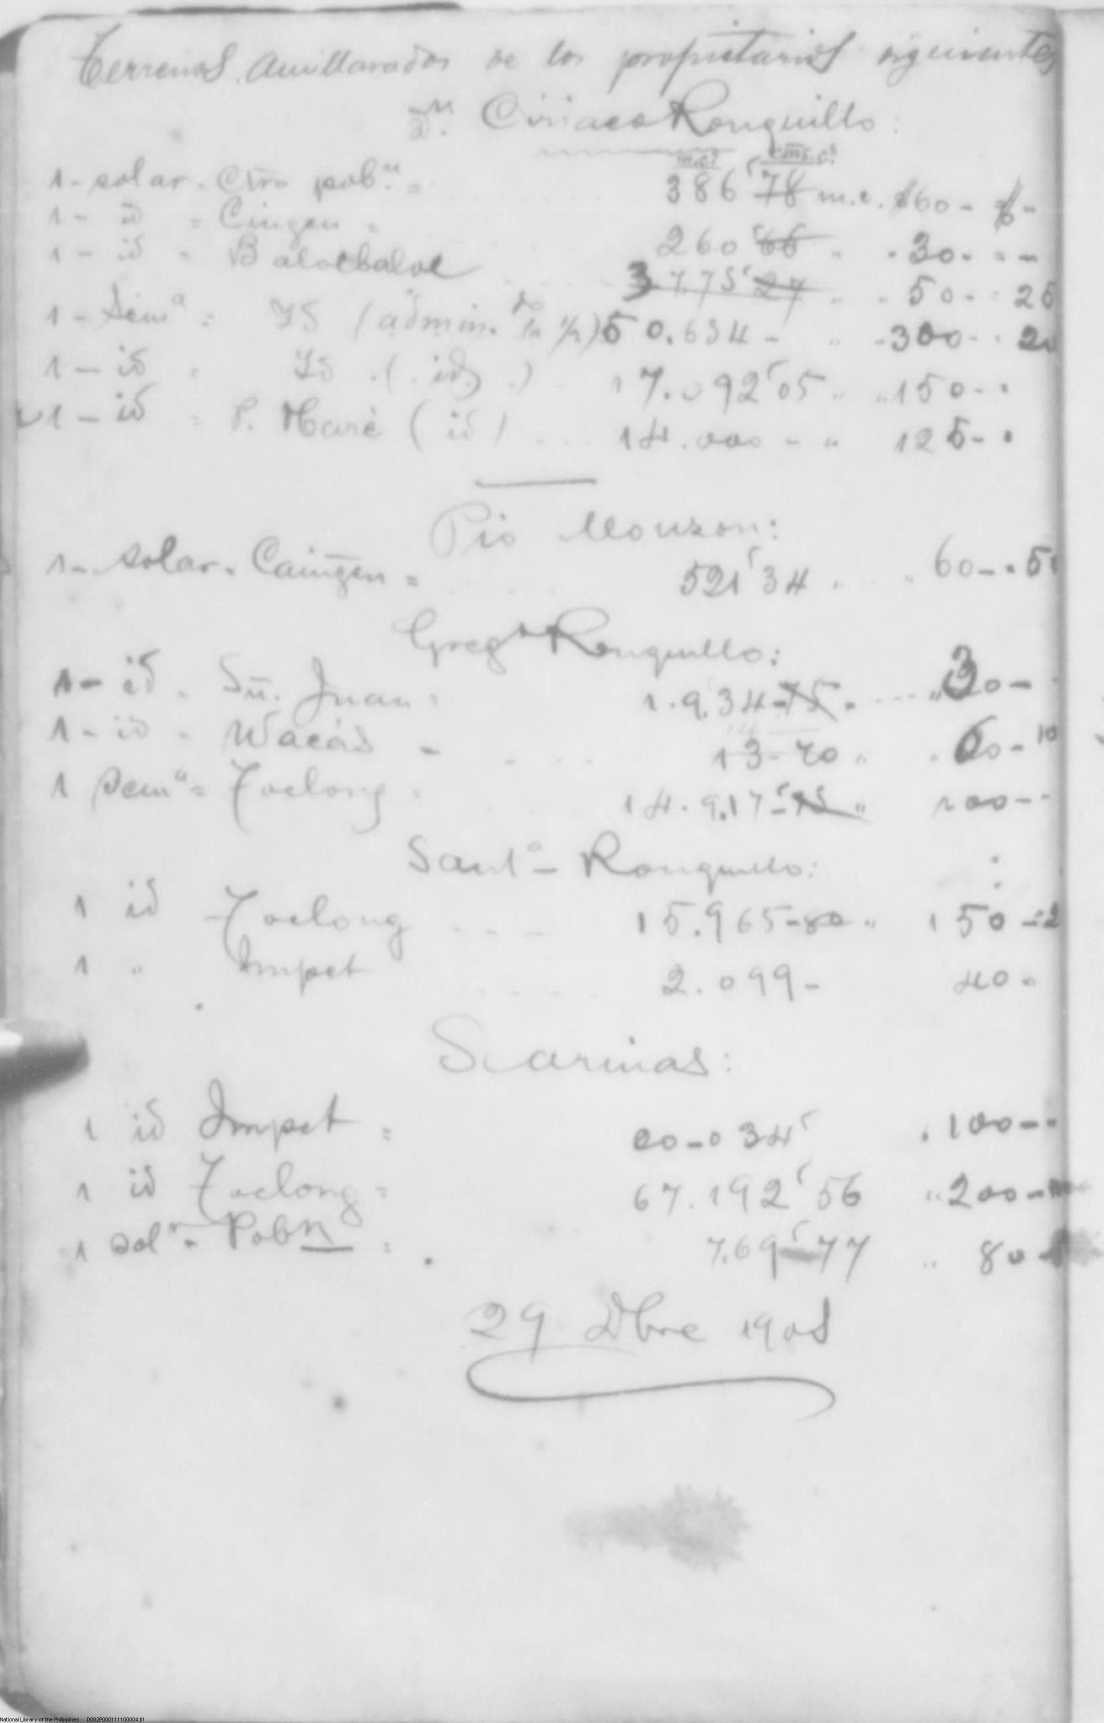 Terrenos Amillarados de los propietarios siguientes
Dn. Ciriaco Ronquillo:
m.c. cms.c.
1 - solar - Ctro pobn = 386'78 m.c. $60 -
1 - id = Cingen = 260'66 " 30 - -
1 - id = Balocbaloc 3775'27 " 50 - 25
1 - Sema = YS (admin. de la ½) 50.634 - " 300 - 20
1 - id = YS (id.) 17.092'05 " 150 -
1 - id = P. Maré (id) 14.000 - " 125 -
Pio Monzon:
1 - solar - Caingen = 521'34 60 - 50
Grego Ronquillo:
1 - id - Sn. Juan = 1.934-75 " 30 -
1 - id - Wacás - 13-70 " 60 - 10
1 Sema = Toclong = 14.917'75 " 100 -
Santo - Ronquillo:
1 id Toclong 15.965-80 " 150 - 2
1 " Impet 2.099 - 40 -
Scarinas:
1 id Impet = 20-034' 100 -
1 id Toclong = 67.192'56 " 200 -
1 solr - Pobn = 769'77 " 80 -
29 Dbre 1908
National Library of the Philippines